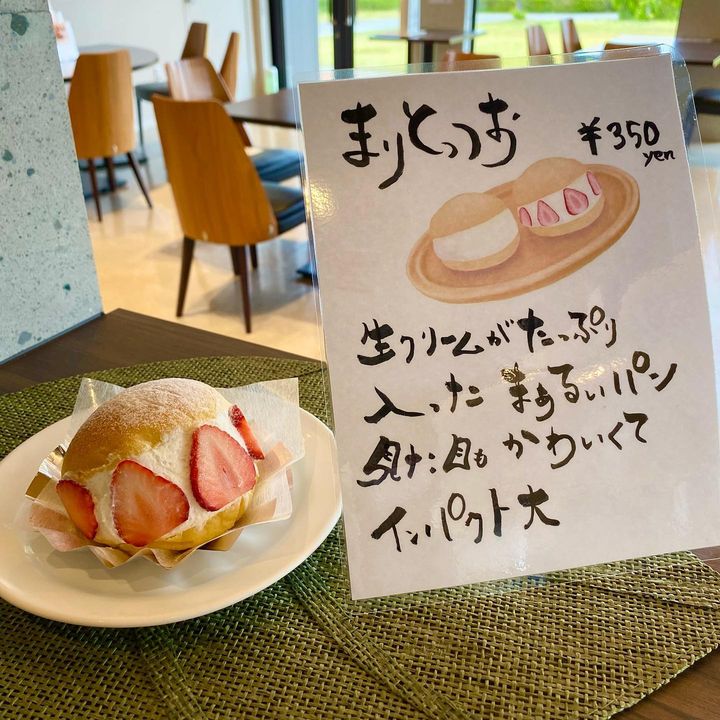 まりとっつお
¥350
yen
生クリームがたっぷり
入った まぁるいパン
見た目も かわいくて
インパクト大